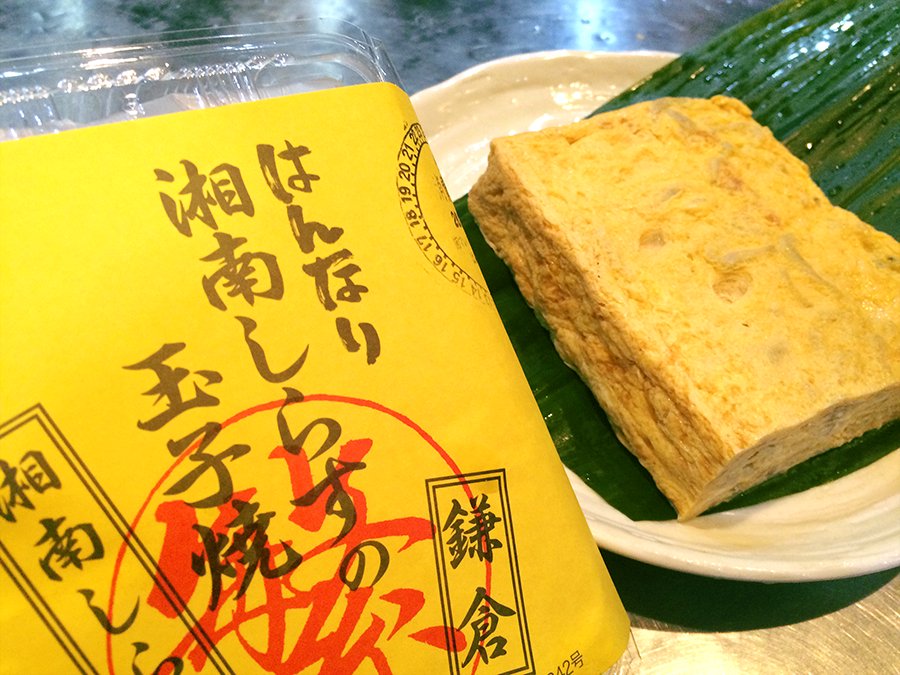 はんなり
湘南しらすの
玉子焼
鎌倉
湘南しら
18 19 20 21
17 16 15 14
242号